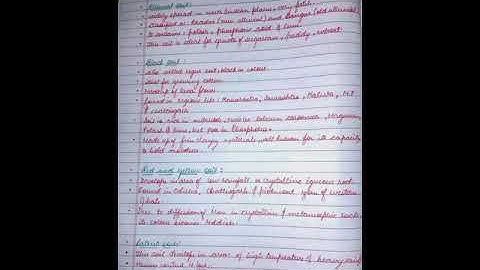 Alluvial soil:
widely spread in northern plains, very fertile.
classified as: khadar (new alluvial) and bangar (old alluvial)
It contains: potash, phosphoric acid & lime.
This soil is ideal for growth of sugarcane, paddy, wheat
Black soil:
also called regur soil, black in colour.
ideal for growing cotton.
made up of lava flows.
found in regions like: Maharashtra, Saurashtra, Malwa, M.P
& Chattisgarh
Soil is rich in nutrients, such as calcium, carbonate, Magnesium,
Potash & lime, but poor in Phosphorus.
made up of fine clayey materials, well known for its capacity
to hold moisture.
Red and yellow soil:
Develops in area of low rainfall on crystalline igneous rock.
Found in Odisha, Chattisgarh & piedmont zone of western
Ghats.
Due to diffusion of iron in crystalline & metamorphic rocks,
its colour becomes reddish.
Laterite soil:
This soil develops in areas of high temperature & heavy rainfall
Humus content is low.